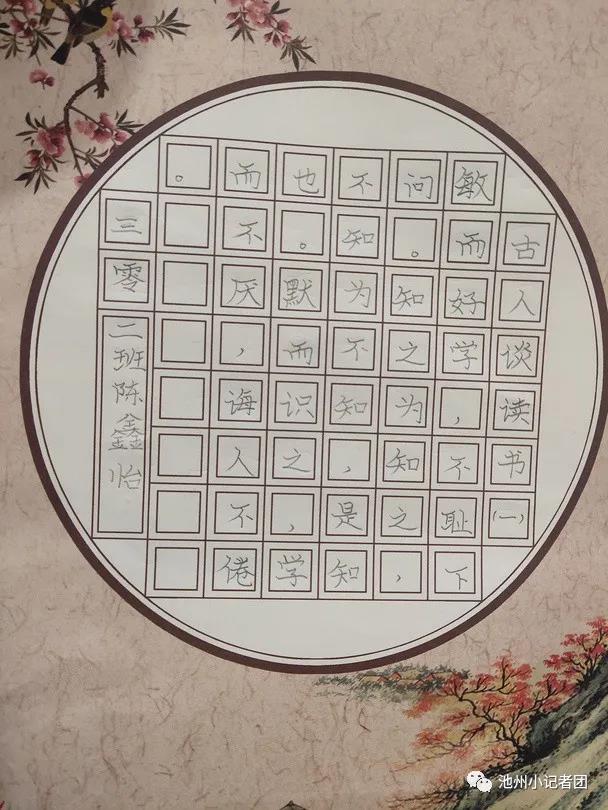 古人谈读书(一)
敏而好学，不耻下
问。知之为知之，
不知为不知，是知
也。默而识之，学
而不厌，诲人不倦
。
三零二班陈鑫怡
池州小记者团